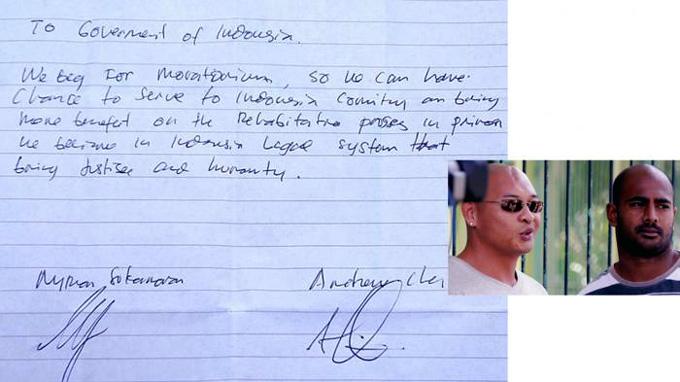 To Goverment of Indonesia.
We beg for moratorium, so we can have
Chance to serve to Indonesia Comnity an bring
more benefit on the Rehabitatio proses in prison
we believe in Indonesia Legal system that
bring Justice and humanty.
Myuran Sukumaran Andrew Chan